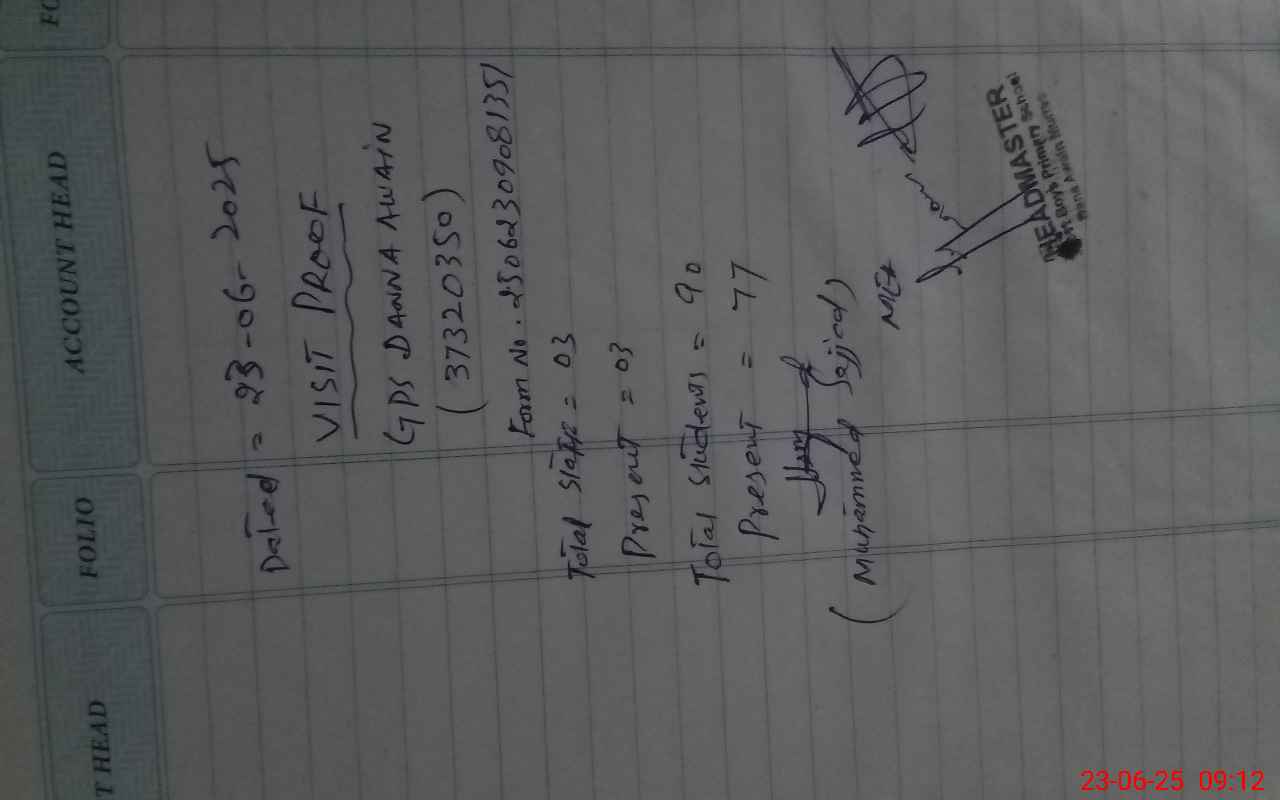 ACCOUNT HEAD
FOLIO
T HEAD
Dated = 23-06-2025
VISIT PROOF
GPS DANNA AWAIN
(37320350)
Form No. 25062309081351
Total Staff = 03
Present = 03
Total Students = 90
Present = 77
(Muhammed Sajjad)
MEA
HEADMASTER
Boys Primary School
23-06-25 09:12